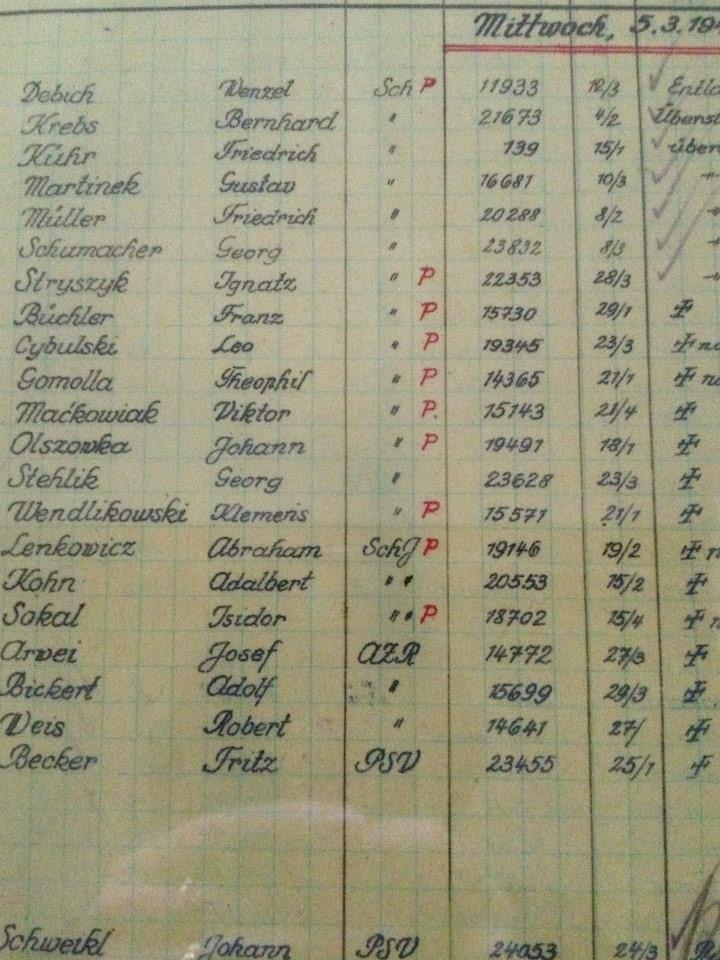 Mittwoch, 5.3.194
Debich Wenzel Sch P 11933 12/3
Krebs Bernhard " 21673 4/2 Überst
Kühr Friedrich " 139 15/1 über
Martinek Gustav " 16681 10/3 "
Müller Friedrich " 20288 8/2 "
Schumacher Georg " 23832 8/3 "
Stryszyk Ignatz " P 22353 28/3 "
Büchler Franz " P 15730 29/1
Cybulski Leo " P 19345 23/3 na
Gomolla Theophil " P 14365 21/1 na
Maćkowiak Viktor " P. 15143 21/4
Olszowka Johann " P 19491 18/1
Stehlik Georg " 23628 23/3
Wendlikowski Klemens " P 15571 21/1
Lenkowicz Abraham SchJ P 19146 19/2 n
Kohn Adalbert " " 20553 15/2
Sokal Isidor " " P 18702 15/4 n
Arwei Josef AZR 14772 27/3
Bickert Adolf " 15699 29/3
Weis Robert " 14641 27/
Becker Fritz PSV 23455 25/1
Schweikl Johann PSV 24053 24/3